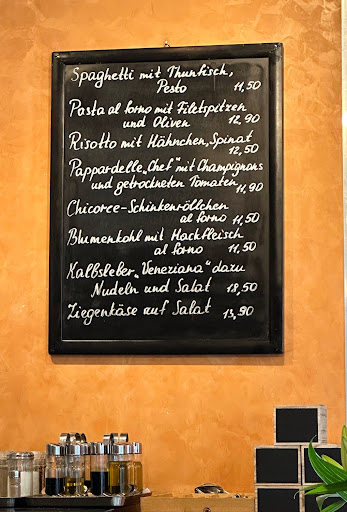 Spaghetti mit Thunfisch,
Pesto 11,50
Pasta al forno mit Filetspitzen
und Oliven 12,90
Risotto mit Hähnchen, Spinat
12,50
Pappardelle „Chef" mit Champignons
und getrockneten Tomaten
11,90
Chicoree-Schinkenröllchen
al forno 11,50
Blumenkohl mit Hackfleisch
al forno 11,50
Kalbsleber „Veneziana" dazu
Nudeln und Salat 18,50
Ziegenkäse auf Salat 13,90